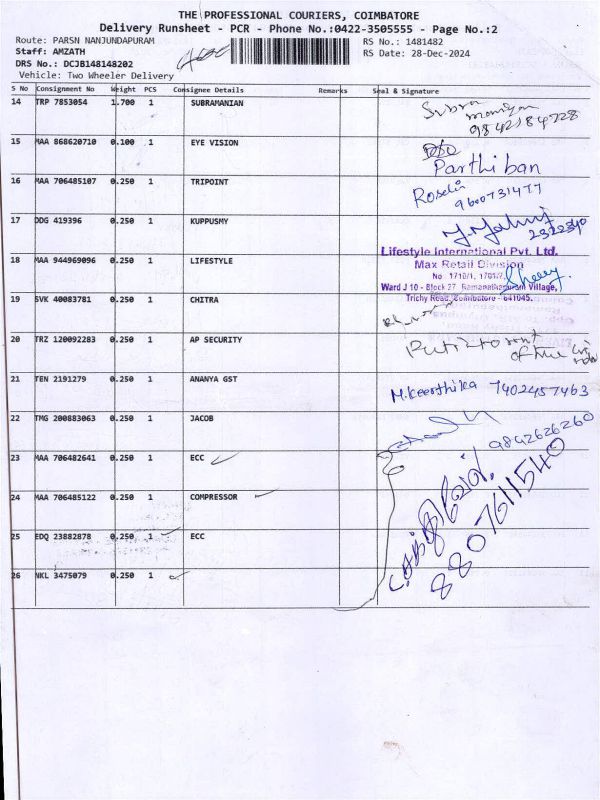 THE PROFESSIONAL COURIERS, COIMBATORE
Delivery Runsheet - PCR - Phone No.:0422-3505555 - Page No.:2
Route: PARSN NANJUNDAPURAM
RS No.: 1481482
Staff: AMZATH
RS Date: 28-Dec-2024
DRS No.: DCJB148148202
Vehicle: Two Wheeler Delivery
S No Consignment No Weight PCS Consignee Details Remarks Seal & Signature
14 TRP 7853054 1.700 1 SUBRAMANIAN
Subra
manian
9842184728
15 MAA 868620710 0.100 1 EYE VISION
Parthiban
16 MAA 706485107 0.250 1 TRIPOINT
Roselin
9600731477
17 DDG 419396 0.250 1 KUPPUSMY
2322340
18 MAA 944969096 0.250 1 LIFESTYLE
Lifestyle International Pvt. Ltd.
Max Retail Division
No. 1710/1, 1701/2,
Ward J 10 - Block 27, Ramanathapuram Village,
Trichy Road, Coimbatore - 641045.
19 SVK 40083781 0.250 1 CHITRA
20 TRZ 120092283 0.250 1 AP SECURITY
of the
21 TEN 2191279 0.250 1 ANANYA GST
M.Keerthika 7402457463
22 TMG 200883063 0.250 1 JACOB
9842626260
23 MAA 706482641 0.250 1 ECC
24 MAA 706485122 0.250 1 COMPRESSOR
8807611540
25 EDQ 23882878 0.250 1 ECC
26 NKL 3475079 0.250 1